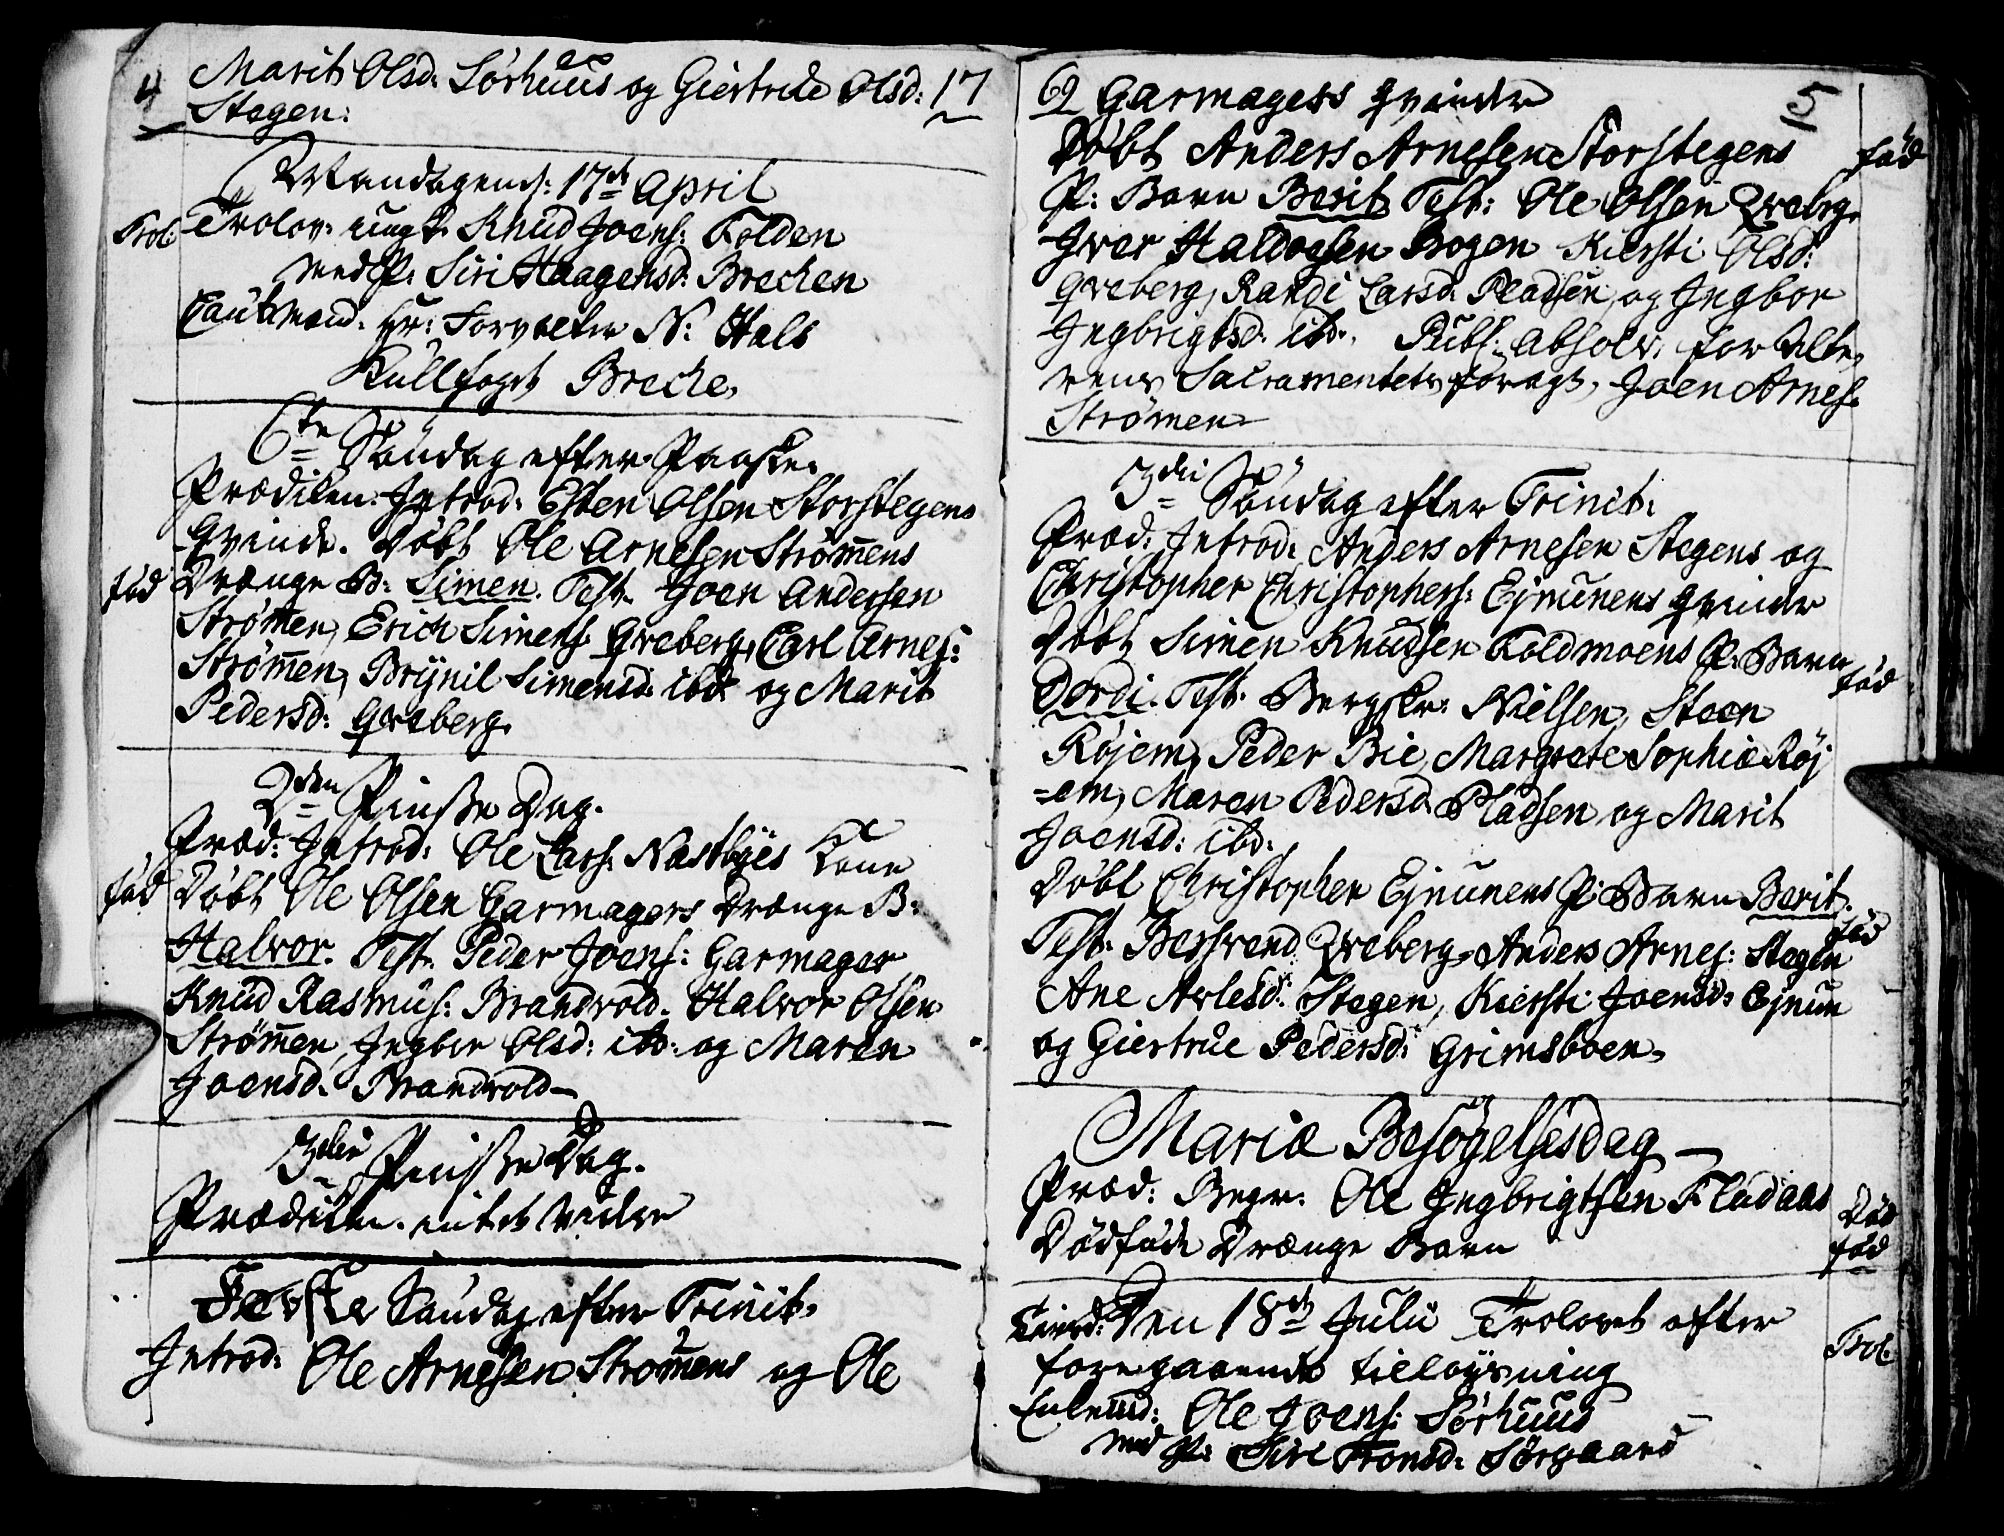 4 Marit Olsd: Sørhuus og Giertrude Olsd: 17
Stegen:
Mandagend: 17de April
Trol: Trolov. ungk. Knud Joens: Folden
med P: Siri Haagensd: Brechen
Cautiond: Hr: Forvalter N: Hals
Kullfogt Breche,
6te Søndag efter Paaske.
Prædiken: Introd: Esten Olsen Storstegens
Qvinde. Døbt Ole Arnesen Strømmens
fød Drænge B: Simen. Test. Joen Andersen
Strømmen, Erich Simens Qveberg, Carl Arnes:
Strømmen, Brynil Simensd: ibd og Marit
Pedersd: Qveberg.
2den Pindse Dag.
Præd: Introd: Ole Lars: Nastbyes Kone
fød Døbt Ole Olsen Garmagers Drænge B:
Halvor. Test. Peder Joens: Garmager
Knud Rasmus: Brandvold. Halvor Olsen
Strømmen, Ingbor Olsd: ibd: og Maren
Joensd. Brandvold
3die Pindse Dag.
Prædiken. intet videre
Første Søndag efter Trinit.
Introd: Ole Arnesen Strømmens og Ole
69 Garmagers Qvinder 5
Døbt Anders Arnesen Storstegens fød
P: Barn Berit Test: Ole Olsen Qveberg
Iver Haldorsen Bogen Kiersti Olsd:
Qveberg, Randi Larsd. Pladsen, og Ingbor
Ingbrigtsd: ibd. Publ: Absolv: for Alte,
rens Sacramentets foragt, Joen Arnes.
Strømen
3die Søndag efter Trinit:
Præd: Introd: Anders Arnesen Stegens og
Christopher Christophers: Ejnunens Qvinder
Døbt Simen Knudsen Koldmoens P: Barn
Dordi. Test. Bergskr: Nielsen, Steen fød
Røjem, Peder Bie, Margrete Sophia Røj
=em, Maren Pedersd: Pladsen og Marit
Joensd: ibd.
Døbt Christopher Ejnunens P: Barn Berit.
Test: Bersvend Qveberg, Anders Arnes: Stegen fød
Ane Arlesd: Stegen, Kiersti Joensd: Ejnun
og Giertrue Pedersd: Grimsboen,
Mariæ Besøgelsesdag
Præd: Begr: Ole Ingbrigtsen Fladaas Død
Dødføde Drænge Barn fød
Den 18de Julii Trolovet efter
foregaaende tillysning Trol:
Enkemd: Ole Joens: Sørhuus
med P: Siri Tronsd: Sørgaard